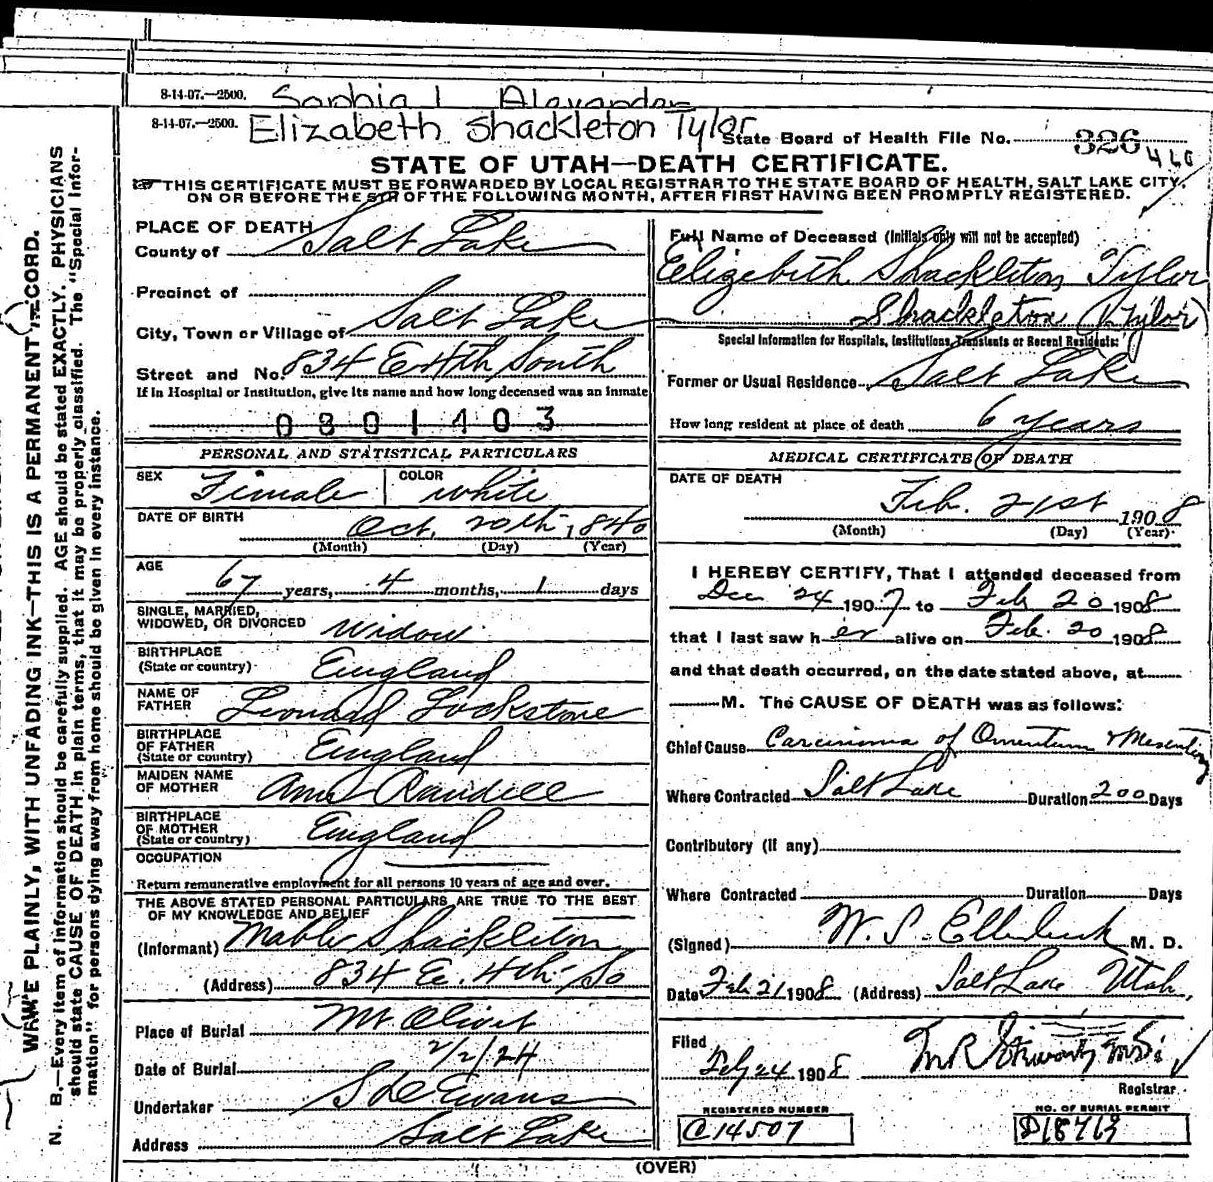 8-14-07.—2500. Sophia L Alexander
8-14-07.—2500. Elizabeth Shackleton Tylor
State Board of Health File No. 326
460
STATE OF UTAH—DEATH CERTIFICATE.
THIS CERTIFICATE MUST BE FORWARDED BY LOCAL REGISTRAR TO THE STATE BOARD OF HEALTH, SALT LAKE CITY,
ON OR BEFORE THE 5TH OF THE FOLLOWING MONTH, AFTER FIRST HAVING BEEN PROMPTLY REGISTERED.
PLACE OF DEATH
County of Salt Lake
Precinct of
City, Town or Village of Salt Lake
Street and No. 834 E 4th South
If in Hospital or Institution, give its name and how long deceased was an inmate
0801403
PERSONAL AND STATISTICAL PARTICULARS
SEX Female COLOR White
DATE OF BIRTH Oct. 20th 1840
(Month) (Day) (Year)
AGE 67 years, 4 months, 1 days
SINGLE, MARRIED,
WIDOWED, OR DIVORCED Widow
BIRTHPLACE
(State or country) England
NAME OF
FATHER Leonard Lockstone
BIRTHPLACE
OF FATHER
(State or country) England
MAIDEN NAME
OF MOTHER Ann Randell
BIRTHPLACE
OF MOTHER
(State or country) England
OCCUPATION
Return remunerative employment for all persons 10 years of age and over.
THE ABOVE STATED PERSONAL PARTICULARS ARE TRUE TO THE BEST
OF MY KNOWLEDGE AND BELIEF
(Informant) Mable Shackleton
(Address) 834 E. 4th So
Place of Burial Mt. Olivet
Date of Burial 2/2/24
Undertaker S D Evans
Address Salt Lake
Full Name of Deceased (Initials only will not be accepted)
Elizebeth Shackleton Tylor
Shackleton (Tylor)
Special Information for Hospitals, Institutions, Transients or Recent Residents:
Former or Usual Residence Salt Lake
How long resident at place of death 6 years
MEDICAL CERTIFICATE OF DEATH
DATE OF DEATH
Feb. 21st 1908
(Month) (Day) (Year)
I HEREBY CERTIFY, That I attended deceased from
Dec 24 1907 to Feb 20 1908
that I last saw her alive on Feb. 20 1908
and that death occurred, on the date stated above, at
M. The CAUSE OF DEATH was as follows:
Chief Cause Carcinoma of Omentum & Mesentery
Where Contracted Salt Lake Duration 200 Days
Contributory (if any)
Where Contracted Duration Days
(Signed) W. S. Ellerbeck M. D.
Date Feb 21 1908 (Address) Salt Lake Utah.
Filed
Feb 24 1908
Registrar
REGISTERED NUMBER
C14507
NO. OF BURIAL PERMIT
D18769
(OVER)
WRITE PLAINLY, WITH UNFADING INK—THIS IS A PERMANENT RECORD.
N. B.—Every item of information should be carefully supplied. AGE should be stated EXACTLY. PHYSICIANS
should state CAUSE OF DEATH in plain terms, that it may be properly classified. The "Special Infor-
mation" for persons dying away from home should be given in every instance.